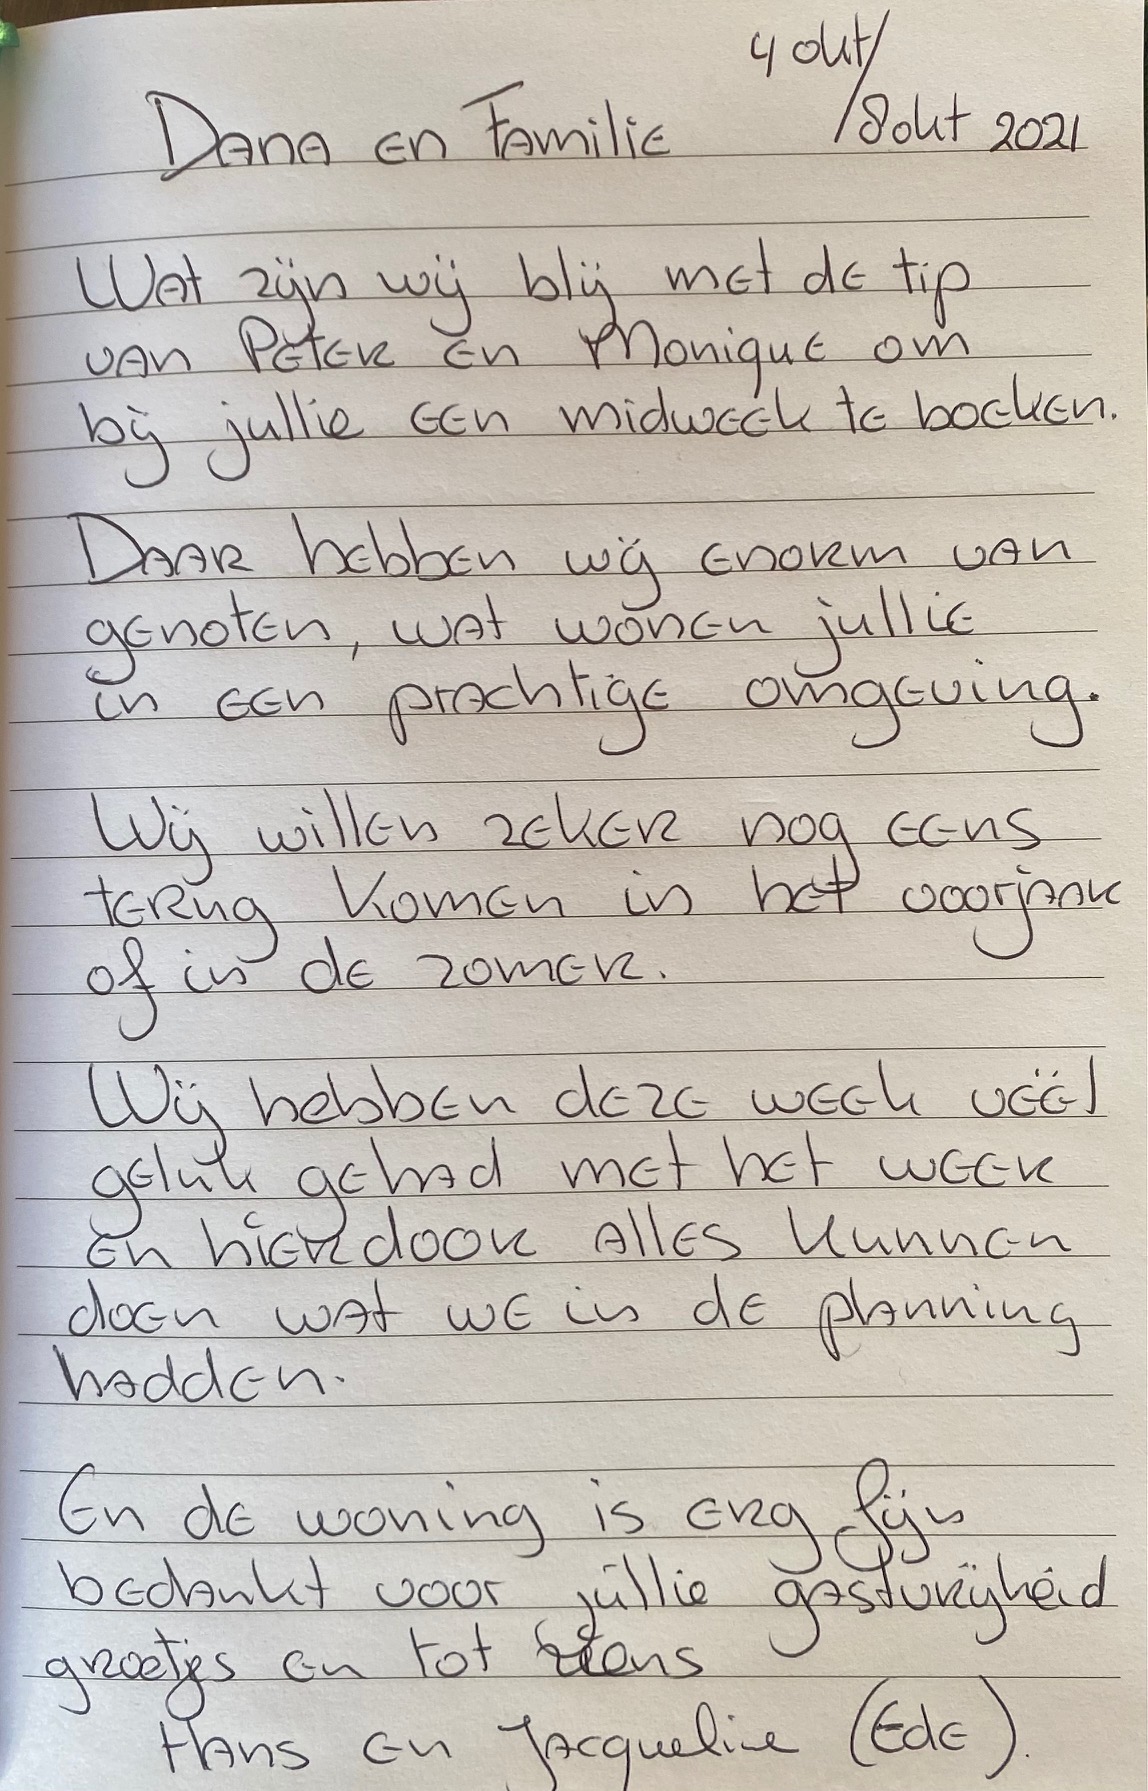 4 okt/
Dana en Familie /8 okt 2021
Wat zijn wij blij met de tip
van Peter en Monique om
bij jullie een midweek te boeken.
Daar hebben wij enorm van
genoten, wat wonen jullie
in een prachtige omgeving.
Wij willen zeker nog eens
terug komen in het voorjaar
of in de zomer.
Wij hebben deze week véél
geluk gehad met het weer
en hierdoor alles kunnen
doen wat we in de planning
hadden.
En de woning is erg fijn
bedankt voor jullie gastvrijheid
groetjes en tot ziens
Hans en Jacqueline (Ede).